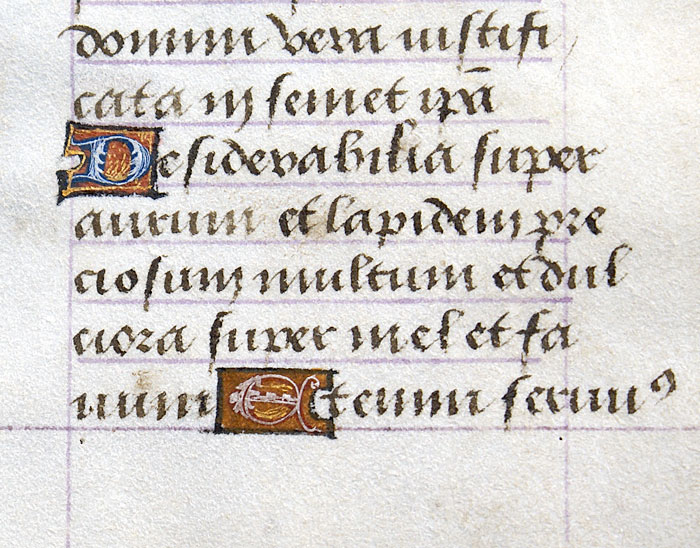 domini vera iustifi
cata in semet ip̄a
Desiderabilia super
aurum et lapidem pre
ciosum multum et dul
ciora super mel et fa
uum Etenim seruuꝰ